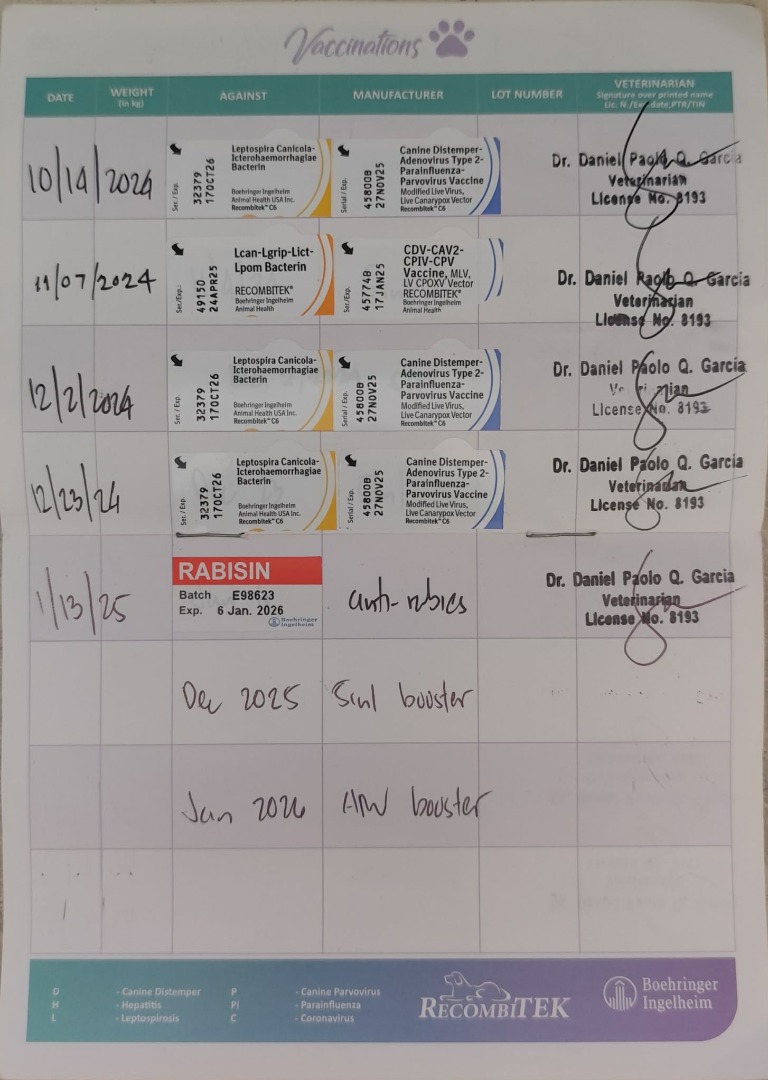 Vaccinations
DATE
WEIGHT
(in kg)
AGAINST
MANUFACTURER
LOT NUMBER
VETERINARIAN
Signature over printed name
Lic. N./Exp. date,PTR/TIN
10/14/2024
Ser./Exp.
32379
17OCT26
Leptospira Canicola-
Icterohaemorrhagiae
Bacterin
Boehringer Ingelheim
Animal Health USA Inc.
Recombitek C6
Serial / Exp.
45800B
27NOV25
Canine Distemper-
Adenovirus Type 2-
Parainfluenza-
Parvovirus Vaccine
Modified Live Virus,
Live Canarypox Vector
Recombitek™ C6
Dr. Daniel Paolo Q. Garcia
Veterinarian
License No. 8193
11/07/2024
Ser./Exp.:
49150
24APR25
Lcan-Lgrip-Lict-
Lpom Bacterin
RECOMBITEK®
Boehringer Ingelheim
Animal Health
Ser./Exp.:
45774B
17JAN25
CDV-CAV2-
CPIV-CPV
Vaccine, MLV,
LV CPOXV Vector
RECOMBITEK®
Boehringer Ingelheim
Animal Health
Dr. Daniel Paolo Q. Garcia
Veterinarian
License No. 8193
12/2/2024
Ser. / Exp.
32379
17OCT26
Leptospira Canicola-
Icterohaemorrhagiae
Bacterin
Boehringer Ingelheim
Animal Health USA Inc.
Recombitek™ C6
Serial / Exp.
45800B
27NOV25
Canine Distemper-
Adenovirus Type 2-
Parainfluenza-
Parvovirus Vaccine
Modified Live Virus,
Live Canarypox Vector
Recombitek™ C6
Dr. Daniel Paolo Q. Garcia
License No. 8193
12/23/24
Ser./Exp.
32379
17OCT26
Leptospira Canicola-
Icterohaemorrhagiae
Bacterin
Boehringer Ingelheim
Animal Health USA Inc.
Recombitek™ C6
Serial / Exp.
45800B
27NOV25
Canine Distemper-
Adenovirus Type 2-
Parainfluenza-
Parvovirus Vaccine
Modified Live Virus,
Live Canarypox Vector
Recombitek™ C6
Dr. Daniel Paolo Q. Garcia
Veterinarian
License No. 8193
1/13/25
RABISIN
Batch E98623
Exp. 6 Jan. 2026
Boehringer
Ingelheim
anti-rabies
Dr. Daniel Paolo Q. Garcia
Veterinarian
License No. 8193
Dec 2025
5in1 booster
Jan 2026
booster
D - Canine Distemper
H - Hepatitis
L - Leptospirosis
P - Canine Parvovirus
Pi - Parainfluenza
C - Coronavirus
RECOMBITEK
Boehringer
Ingelheim